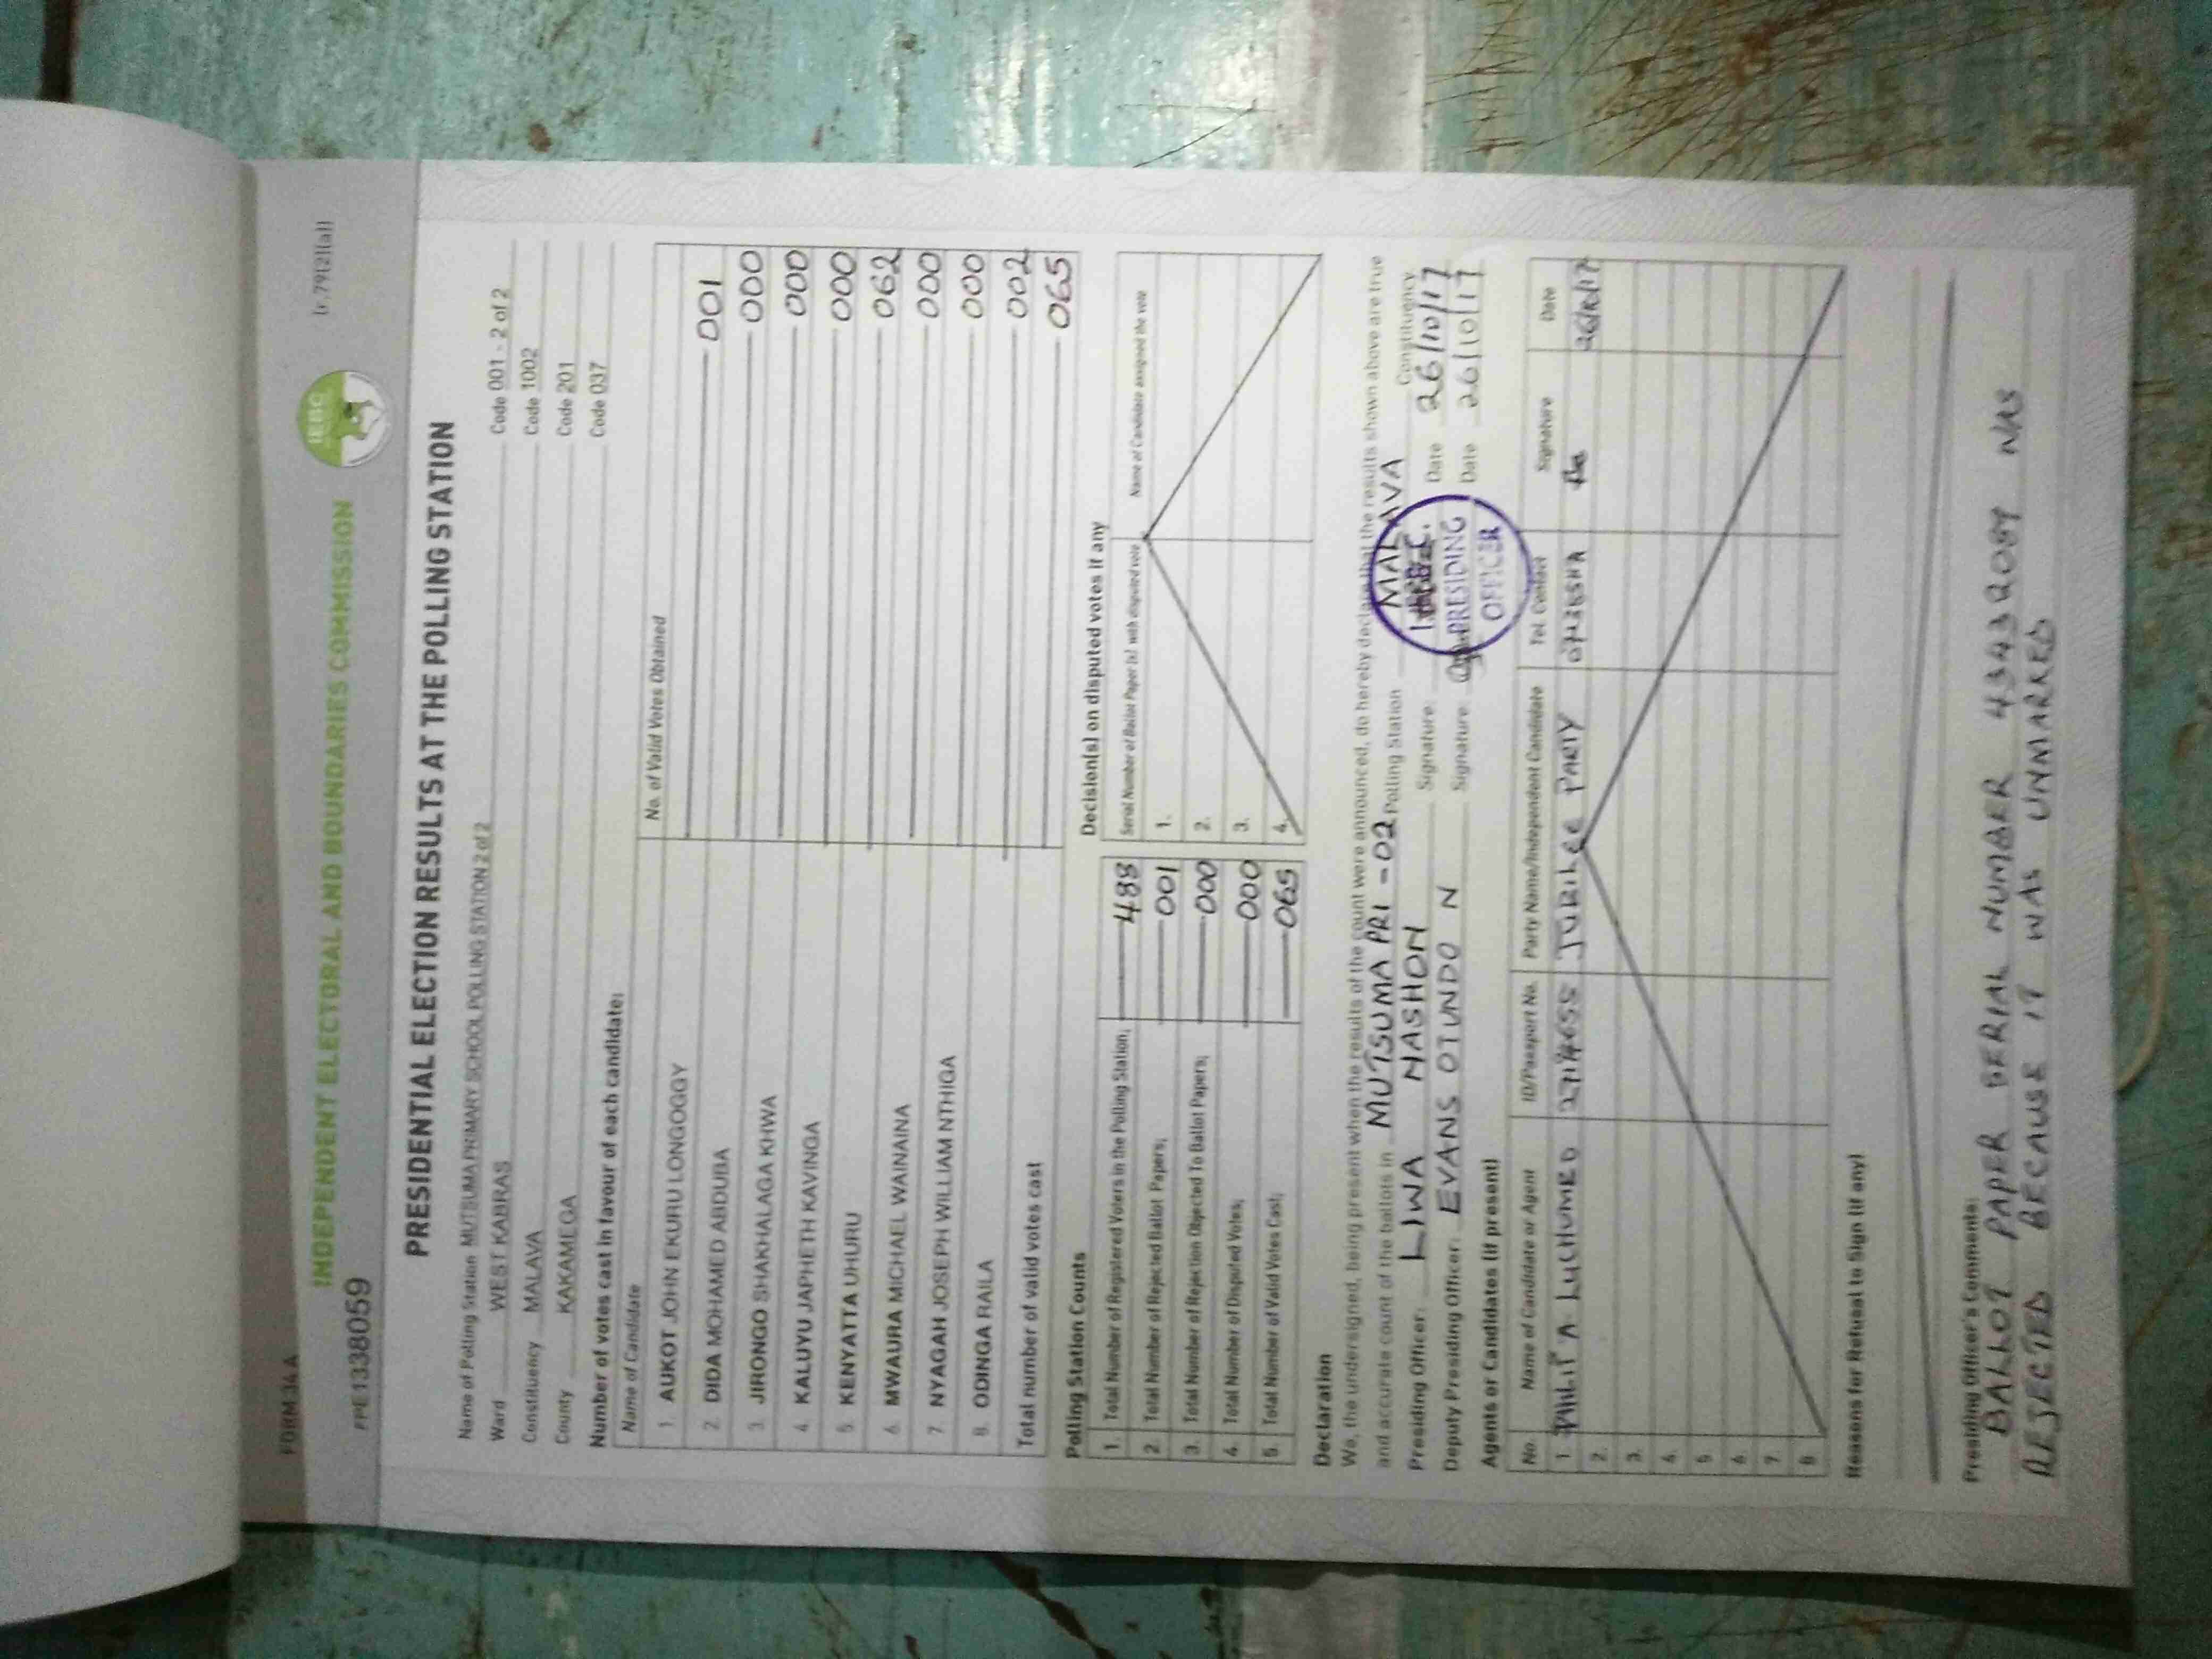 FORM 34A
INDEPENDENT ELECTORAL AND BOUNDARIES COMMISSION
IEBC
(r.79(2)(a))
FPE1338059
PRESIDENTIAL ELECTION RESULTS AT THE POLLING STATION
Name of Polling Station MUTSUMA PRIMARY SCHOOL POLLING STATION 2 of 2 Code 001 - 2 of 2
Ward WEST KABRAS Code 1002
Constituency MALAVA Code 201
County KAKAMEGA Code 037
Number of votes cast in favour of each candidate:
Name of Candidate No. of Valid Votes Obtained
1. AUKOT JOHN EKURU LONGOGGY 001
2. DIDA MOHAMED ABDUBA 000
3. JIRONGO SHAKHALAGA KHWA 000
4. KALUYU JAPHETH KAVINGA 000
5. KENYATTA UHURU 062
6. MWAURA MICHAEL WAINAINA 000
7. NYAGAH JOSEPH WILLIAM NTHIGA 000
8. ODINGA RAILA 002
Total number of valid votes cast 065
Polling Station Counts
1. Total Number of Registered Voters in the Polling Station; 488
2. Total Number of Rejected Ballot Papers; 001
3. Total Number of Rejection Objected To Ballot Papers; 000
4. Total Number of Disputed Votes; 000
5. Total Number of Valid Votes Cast; 065
Decision(s) on disputed votes if any
Serial Number of Ballot Paper (s) with disputed vote Name of Candidate assigned the vote
1.
2.
3.
4.
Declaration
We, the undersigned, being present when the results of the count were announced, do hereby declare that the results shown above are true
and accurate count of the ballots in MUTSUMA PRI - 02 Polling Station MALAVA Constituency
Presiding Officer: LIWA HASHON Signature Date 26/10/17
Deputy Presiding Officer: EVANS OTUNDO N Signature Date 26/10/17
PRESIDING
OFFICER
Agents or Candidates (if present)
No. Name of Candidate or Agent ID/Passport No. Party Name/Independent Candidate Tel. Contact Signature Date
1. LUCHUMED JUBILEE PARTY 26/10/17
2.
3.
4.
5.
6.
7.
8.
Reasons for Refusal to Sign (if any)
Presiding Officer's Comments:
BALLOT PAPER SERIAL NUMBER 43432089 WAS
REJECTED BECAUSE IT WAS UNMARKED